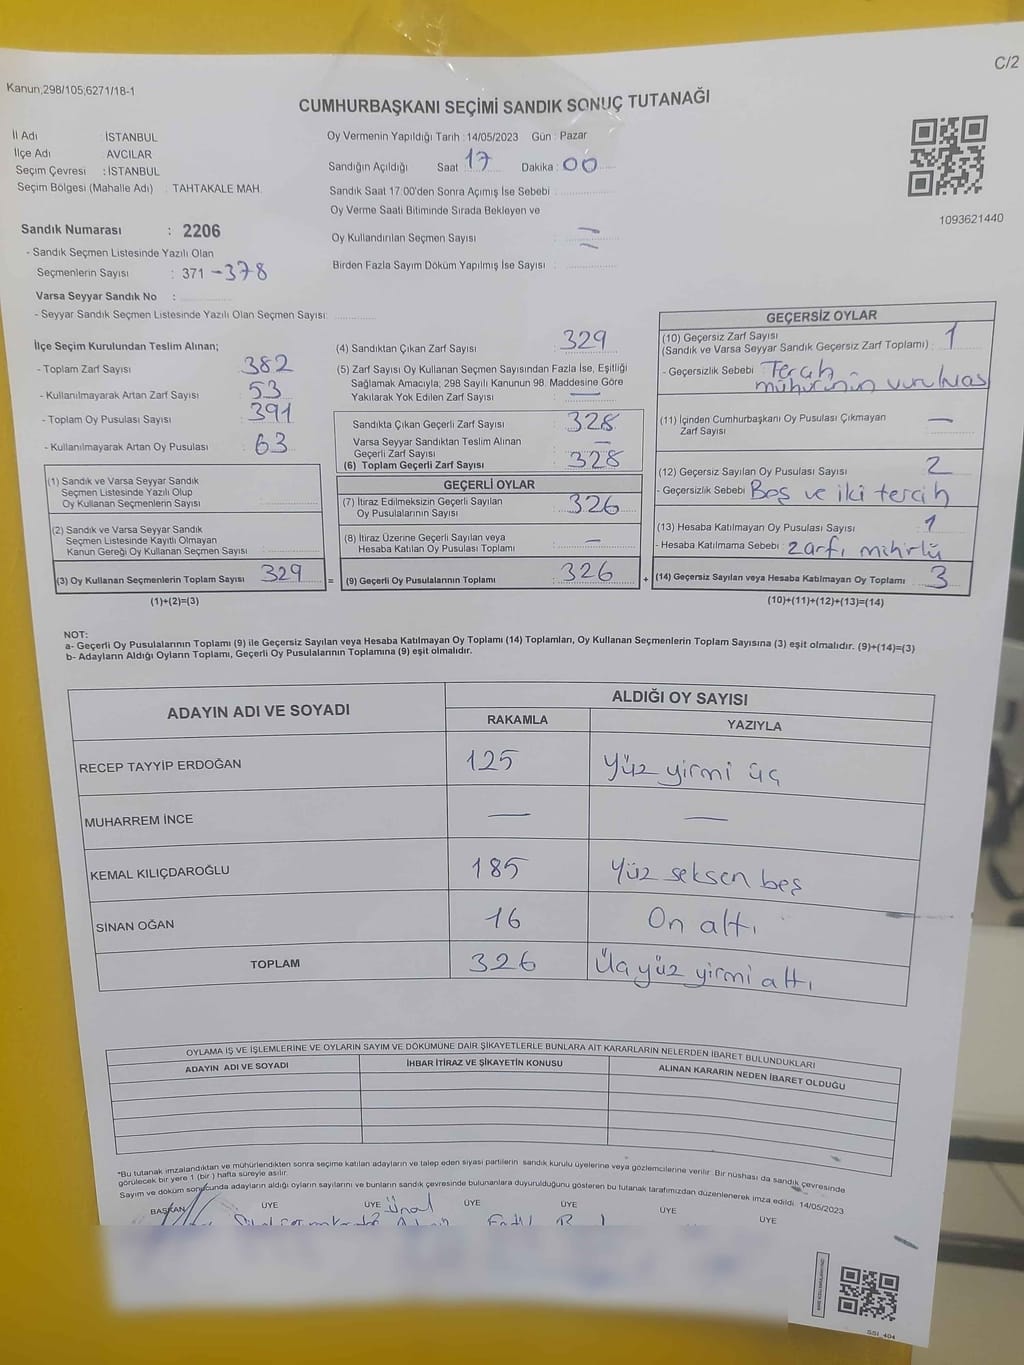 C/2
Kanun;298/105;6271/18-1
CUMHURBAŞKANI SEÇİMİ SANDIK SONUÇ TUTANAĞI
İl Adı : İSTANBUL
İlçe Adı : AVCILAR
Seçim Çevresi : İSTANBUL
Seçim Bölgesi (Mahalle Adı) : TAHTAKALE MAH.
Oy Vermenin Yapıldığı Tarih : 14/05/2023 Gün : Pazar
Sandığın Açıldığı Saat 17 Dakika : 00
Sandık Saat 17:00'den Sonra Açımış İse Sebebi :
Oy Verme Saati Bitiminde Sırada Bekleyen ve
Oy Kullandırılan Seçmen Sayısı :
Birden Fazla Sayım Döküm Yapılmış İse Sayısı :
1093621440
Sandık Numarası : 2206
- Sandık Seçmen Listesinde Yazılı Olan
Seçmenlerin Sayısı : 371 -378
Varsa Seyyar Sandık No :
- Seyyar Sandık Seçmen Listesinde Yazılı Olan Seçmen Sayısı:
İlçe Seçim Kurulundan Teslim Alınan;
- Toplam Zarf Sayısı : 382
- Kullanılmayarak Artan Zarf Sayısı : 53
- Toplam Oy Pusulası Sayısı : 391
- Kullanılmayarak Artan Oy Pusulası : 63
(1) Sandık ve Varsa Seyyar Sandık
Seçmen Listesinde Yazılı Olup
Oy Kullanan Seçmenlerin Sayısı :
(2) Sandık ve Varsa Seyyar Sandık
Seçmen Listesinde Kayıtlı Olmayan
Kanun Gereği Oy Kullanan Seçmen Sayısı :
(3) Oy Kullanan Seçmenlerin Toplam Sayısı : 329
(1)+(2)=(3)
=
(4) Sandıktan Çıkan Zarf Sayısı : 329
(5) Zarf Sayısı Oy Kullanan Seçmen Sayısından Fazla İse, Eşitliği
Sağlamak Amacıyla; 298 Sayılı Kanunun 98. Maddesine Göre
Yakılarak Yok Edilen Zarf Sayısı : —
Sandıkta Çıkan Geçerli Zarf Sayısı : 328
Varsa Seyyar Sandıktan Teslim Alınan
Geçerli Zarf Sayısı : —
(6) Toplam Geçerli Zarf Sayısı : 328
GEÇERLİ OYLAR
(7) İtiraz Edilmeksizin Geçerli Sayılan
Oy Pusulalarının Sayısı : 326
(8) İtiraz Üzerine Geçerli Sayılan veya
Hesaba Katılan Oy Pusulası Toplamı : —
(9) Geçerli Oy Pusulalarının Toplamı : 326
+
GEÇERSİZ OYLAR
(10) Geçersiz Zarf Sayısı
(Sandık ve Varsa Seyyar Sandık Geçersiz Zarf Toplamı) : 1
- Geçersizlik Sebebi : Tercih
mühürünün vurulması
(11) İçinden Cumhurbaşkanı Oy Pusulası Çıkmayan
Zarf Sayısı : —
(12) Geçersiz Sayılan Oy Pusulası Sayısı : 2
- Geçersizlik Sebebi : Boş ve iki tercih
(13) Hesaba Katılmayan Oy Pusulası Sayısı : 1
- Hesaba Katılmama Sebebi : zarfı mihirlü
(14) Geçersiz Sayılan veya Hesaba Katılmayan Oy Toplamı : 3
(10)+(11)+(12)+(13)=(14)
NOT:
a- Geçerli Oy Pusulalarının Toplamı (9) ile Geçersiz Sayılan veya Hesaba Katılmayan Oy Toplamı (14) Toplamları, Oy Kullanan Seçmenlerin Toplam Sayısına (3) eşit olmalıdır. (9)+(14)=(3)
b- Adayların Aldığı Oyların Toplamı, Geçerli Oy Pusulalarının Toplamına (9) eşit olmalıdır.
ADAYIN ADI VE SOYADI ALDIĞI OY SAYISI
RAKAMLA YAZIYLA
RECEP TAYYİP ERDOĞAN 125 Yüz yirmi üç
MUHARREM İNCE — —
KEMAL KILIÇDAROĞLU 185 Yüz seksen beş
SİNAN OĞAN 16 On altı
TOPLAM 326 Üçyüz yirmi altı
OYLAMA İŞ VE İŞLEMLERİNE VE OYLARIN SAYIM VE DÖKÜMÜNE DAİR ŞİKAYETLERLE BUNLARA AİT KARARLARIN NELERDEN İBARET BULUNDUKLARI
ADAYIN ADI VE SOYADI İHBAR İTİRAZ VE ŞİKAYETİN KONUSU ALINAN KARARIN NEDEN İBARET OLDUĞU
*Bu tutanak imzalandıktan ve mühürlendikten sonra seçime katılan adayların ve talep eden siyasi partilerin sandık kurulu üyelerine veya gözlemcilerine verilir. Bir nüshası da sandık çevresinde
görülecek bir yere 1 (bir) hafta süreyle asılır.
Sayım ve döküm sonucunda adayların aldığı oyların sayılarını ve bunların sandık çevresinde bulunanlara duyurulduğunu gösteren bu tutanak tarafımızdan düzenlenerek imza edildi. 14/05/2023
BAŞKAN ÜYE ÜYE ÜYE ÜYE ÜYE ÜYE
Ünal
SSI_404